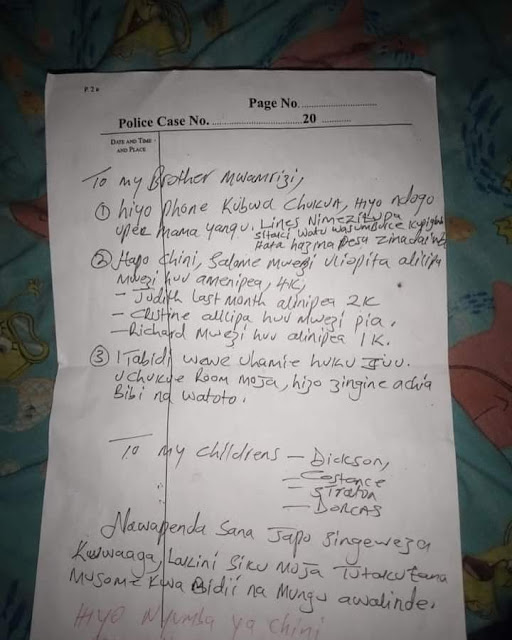 P 20
Page No.
Police Case No. 20
DATE AND TIME
AND PLACE
To my Brother Mwamrizi,
① hiyo Phone Kubwa Chukua, Hiyo ndogo
upee mama yangu. Lines Nimezitupa
Sitaki watu wasumbuke kupigia
Hata hazina Pesa zinadaiwa
② Hapo Chini, Salome mwezi uliopita alilipa
Mwezi huu amenipea, 4K,
- Judith last month alinipea 2K
- Cristine alilipa huu Mwezi pia.
- Richard Mwezi huu alinipea 1K.
③ Itabidi wewe uhamie huku Juu.
Uchukue Room moja, hizo zingine achia
Bibi na watoto.
To my childrens - Dickson,
- Costance
- Straton
- DORCAS
Nawapenda Sana Japo singeweza
Kuwaaga, Lakini Siku moja Tutakutana
Musome Kwa Bidii na Mungu awalinde.
Hiyo Nyumba ya chini